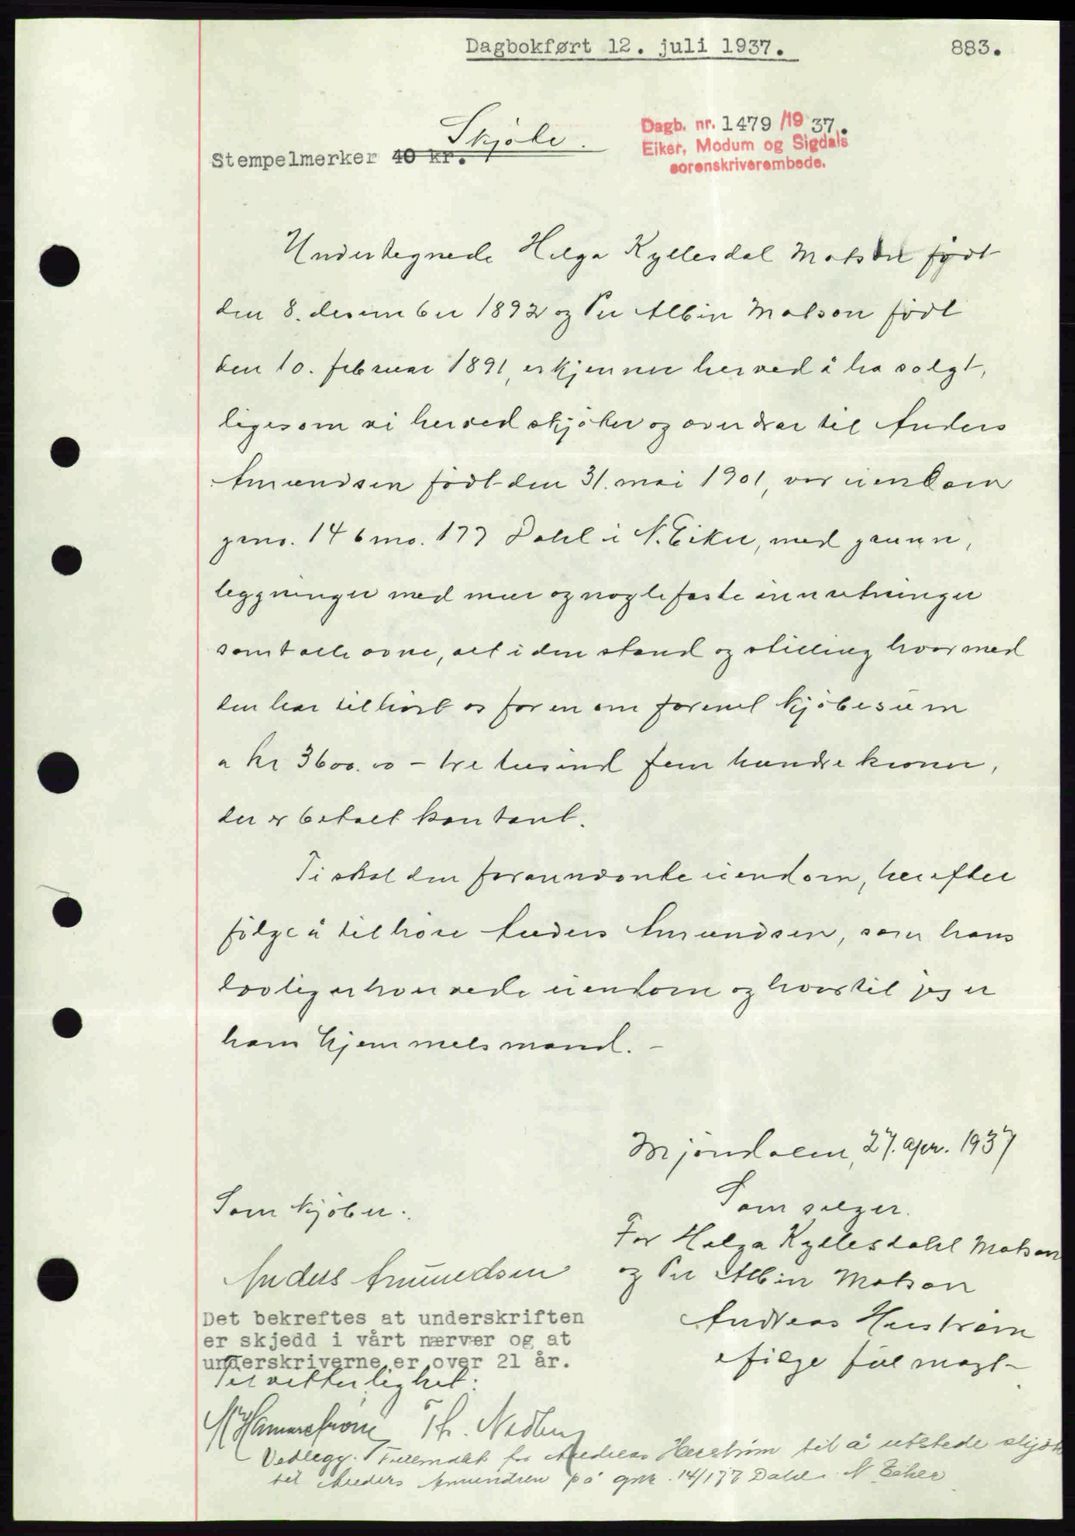 Dagbokført 12. juli 1937. 883.
Skjøte.
Dagb. nr. 1479 /19 37.
Stempelmerker 40 kr.
Eiker, Modum og Sigdals
sorenskriverembede.
Undertegnede Helga Kyllesdal Matson født
den 8. desember 1892 og Per Albin Matson født
den 10. februar 1891, erkjenner herved å ha solgt,
ligesom vi herved skjøter og overdrar til Anders
Amundsen født den 31. mai 1901, vor eiendom
grno. 14 bno. 177 Dahl i N. Eiker, med grunn,
leggninger med mur og naglefaste innretninger
samt alle ovne, alt i den stand og stilling hvormed
den har tilhørt os for en om forenet kjøbesum
a kr 3600.00 – tre tusind fem hundre kroner,
der er betalt kontant.
Ti skal den forannevnte eiendom, herefter
følge å tilhøre Anders Amundsen, som hans
lovlig erhvervede eiendom og hvortil jeg er
hans hjemmelsmand. –
Mjøndalen, 27. apr. 1937
Som kjøber:
Som selger.
For Helga Kyllesdahl Matson
og Per Albin Matson
Anders Amundsen
Andreas Herstrøm
efølge fulmagt
Det bekreftes at underskriften
er skjedd i vårt nærvær og at
underskriverne er over 21 år.
Til vitterlighet:
Th.
Vedlegg: Fullmakt for Andreas Herstrøm til å utstede skjøte
til Anders Amundsen på gnr. 14/177 Dahl i N Eiker